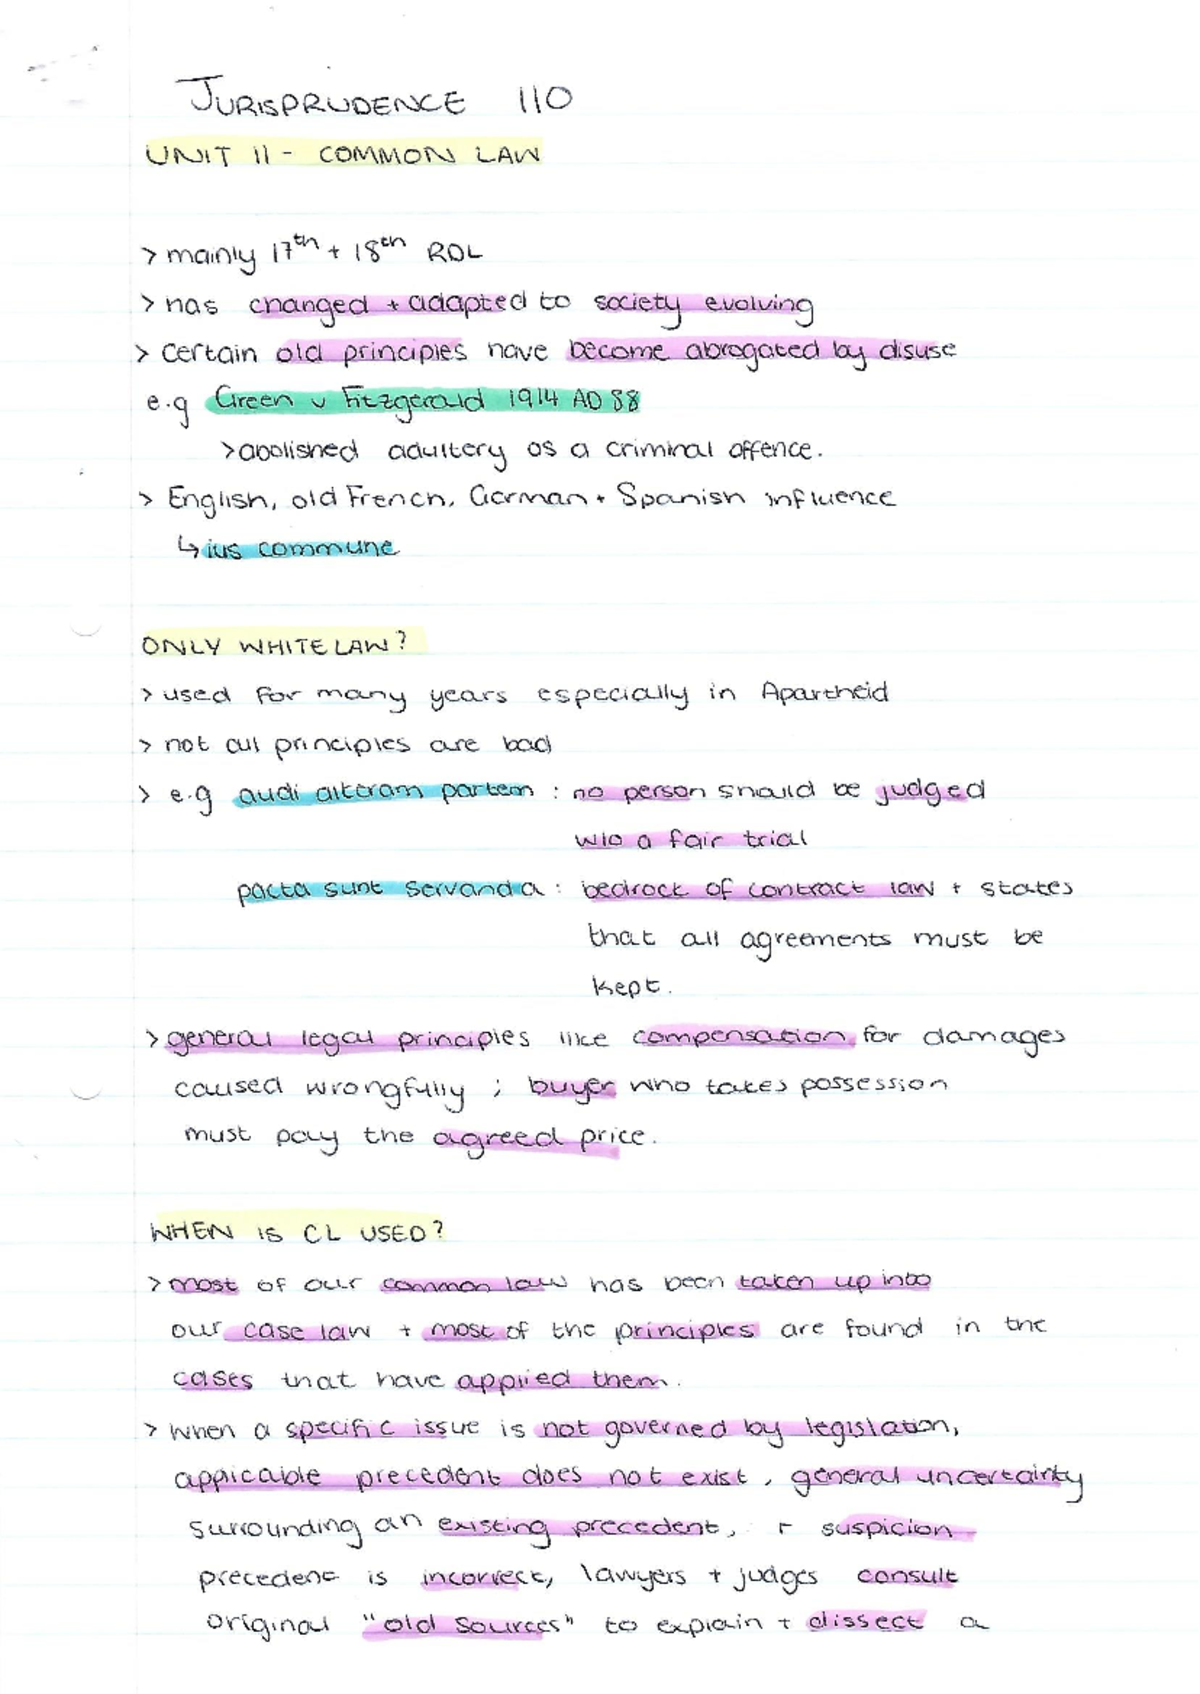 JURISPRUDENCE 110
UNIT 11 - COMMON LAW
> mainly 17th + 18th RDL
> has changed + adapted to society evolving
> certain old principles have become abrogated by disuse
e.g Green v Fitzgerald 1914 AD 88
> abolished adultery as a criminal offence.
> English, old French, German + Spanish influence
↳ ius commune
ONLY WHITE LAW?
> used for many years especially in Apartheid
> not all principles are bad
> e.g audi alteram partem : no person should be judged
w/o a fair trial
pacta sunt servanda : bedrock of contract law + states
that all agreements must be
kept.
> general legal principles like compensation for damages
caused wrongfully ; buyer who takes possession
must pay the agreed price.
WHEN IS CL USED?
> most of our common law has been taken up into
our case law + most of the principles are found in the
cases that have applied them.
> When a specific issue is not governed by legislation,
appicable precedent does not exist, general uncertainty
surrounding an existing precedent, + suspicion
precedent is incorrect, lawyers + judges consult
original "old sources" to explain + dissect a